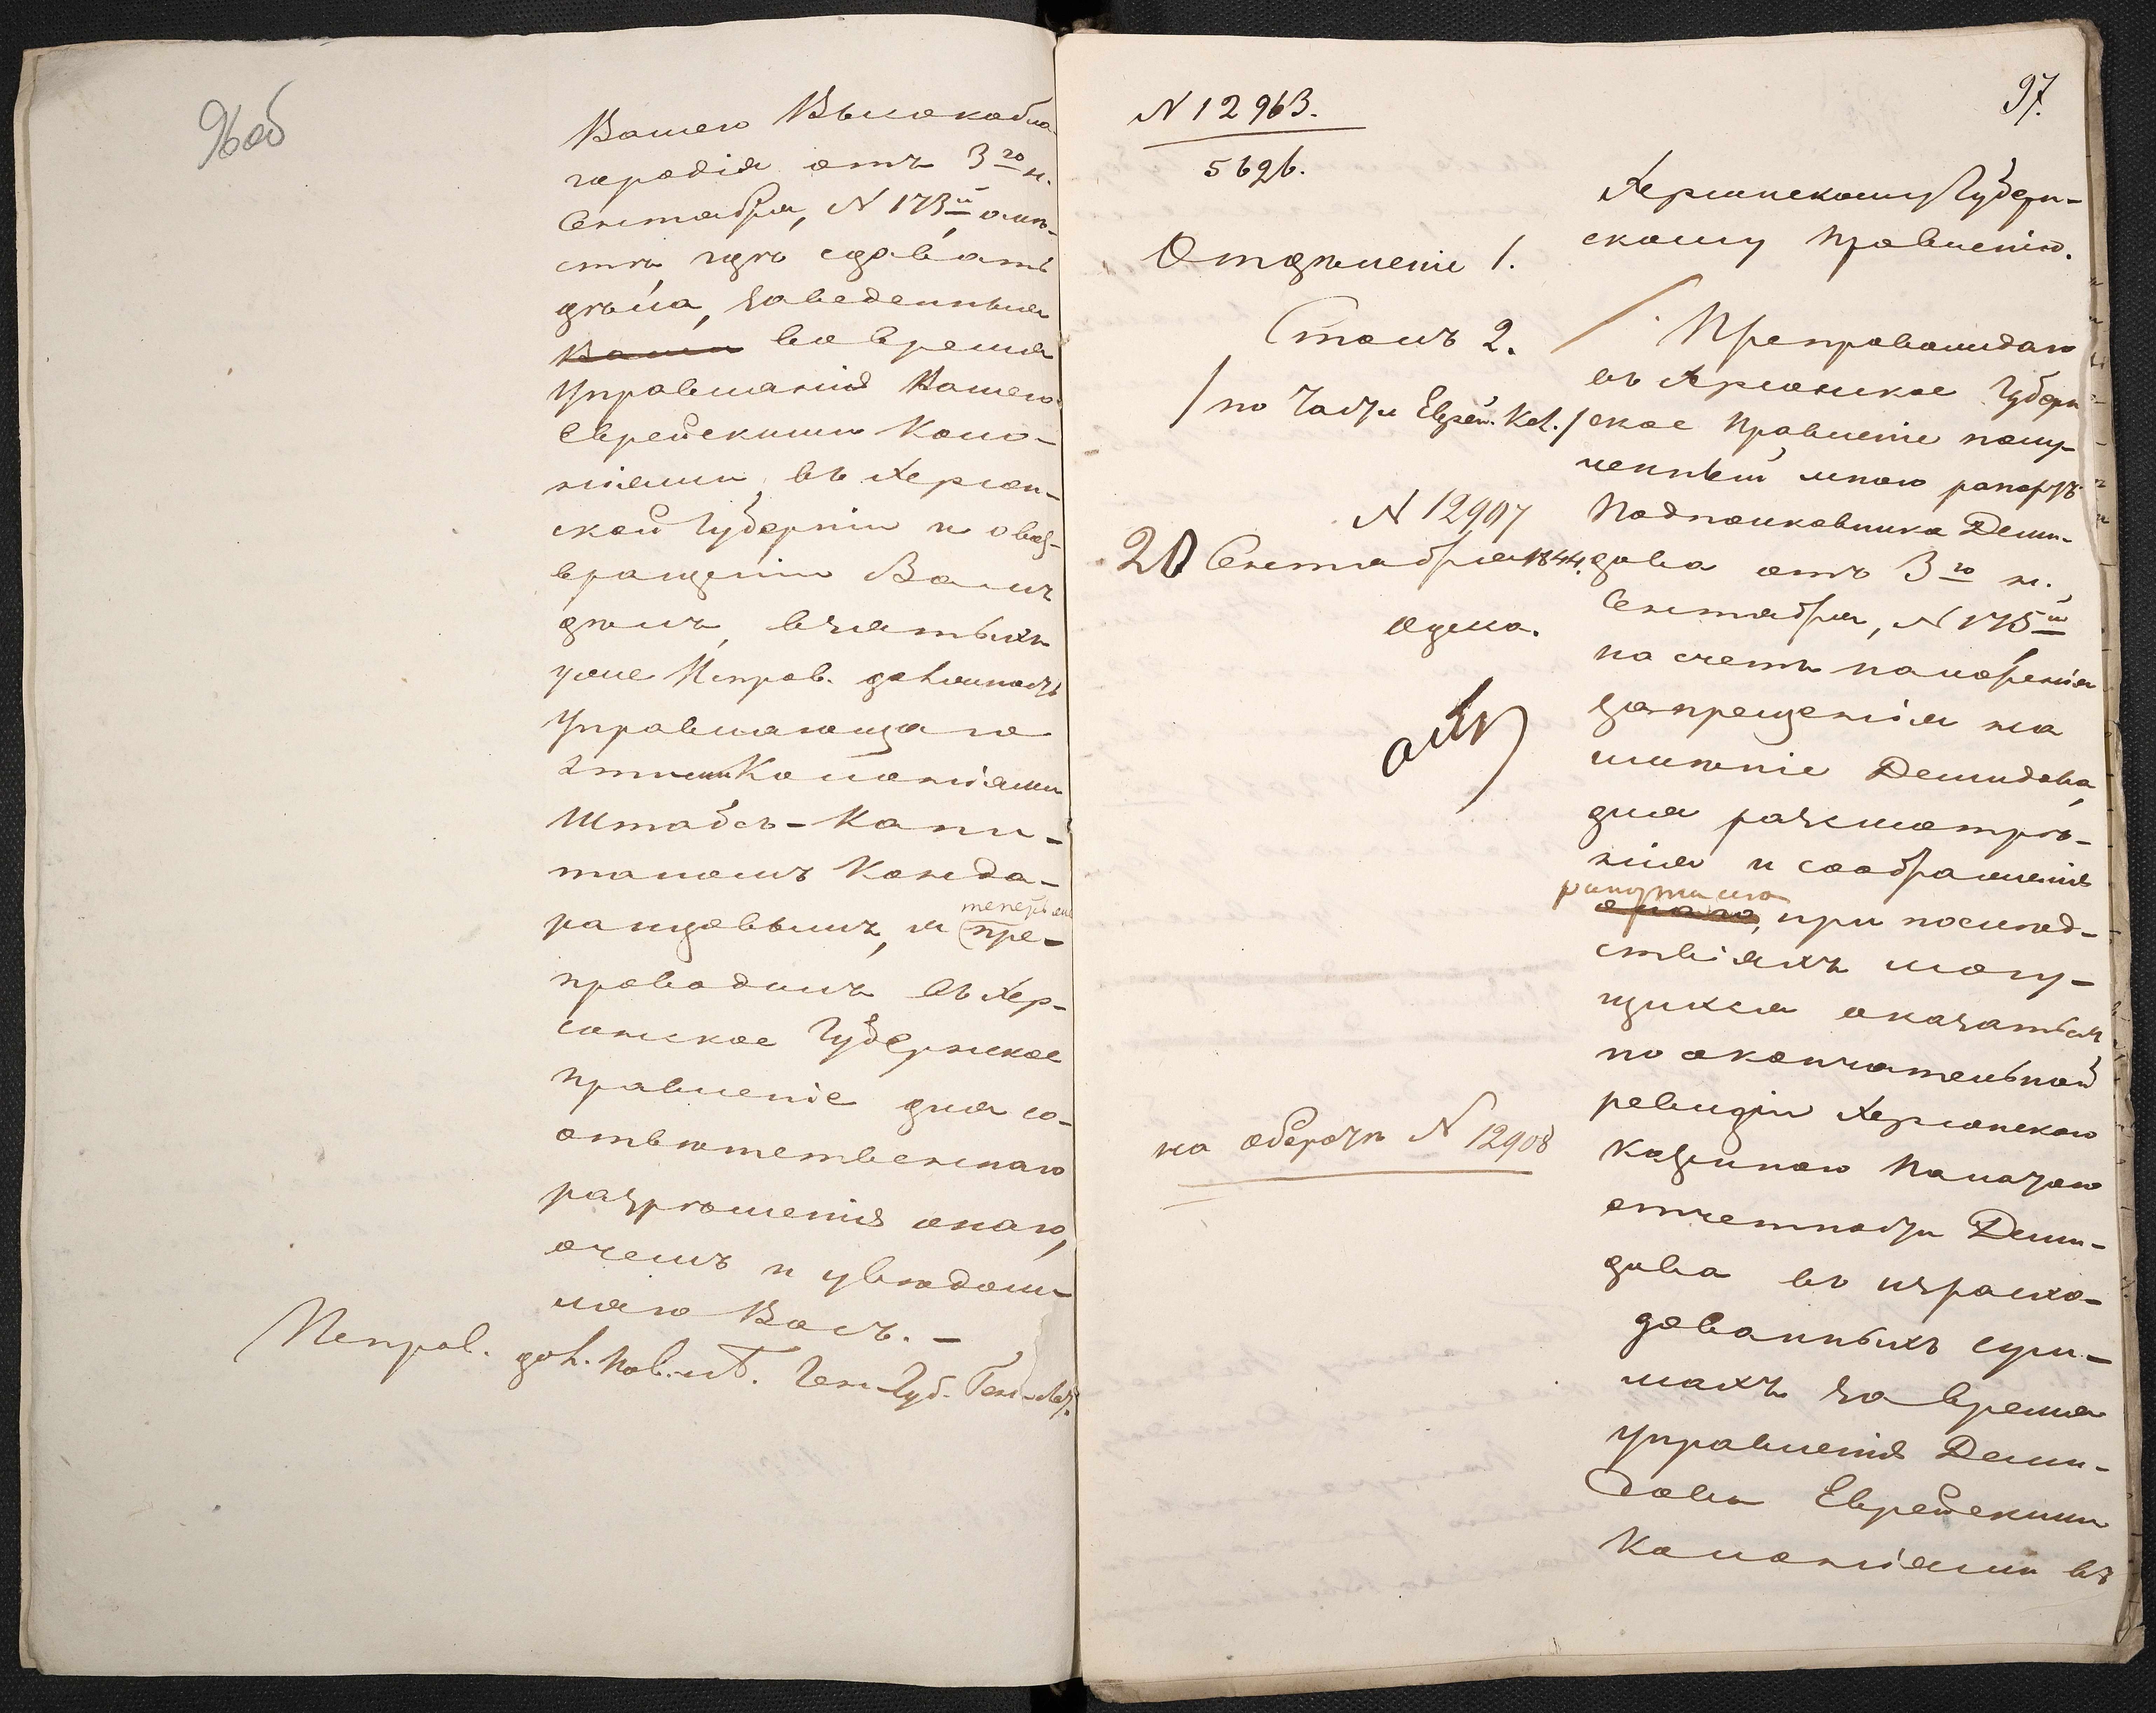 96 об
Вашего Высокобла-
городія отъ 3го н.
Сентября, N 173й, о мѣ-
стѣ, гдѣ сдавать
дѣла, заведенныя
Вами во время
Управленія Вашего
Еврейскими Коло-
ніями, въ Херсон-
ской Губерніи и о воз-
вращеніи Вамъ
дѣлъ, взятыхъ
уже Исправ. должность
Управляющаго
этими Колоніями
Штабсъ-Капи-
таномъ Конда-
ранцовымъ, я
пре-
проводилъ въ Хер-
сонское Губернское
правленіе для со-
отвѣтственнаго
разрѣшенія онаго,
о чемъ и увѣдом-
ляю Васъ. —
Исправ. дол. Нов. и Б. Ген-Губ. Ген-Лей.
97.
N 12963.
5626.
Отдѣленіе 1.
Столъ 2.
/ по Части Еврей. Кол. /
N 12907
20 Сентября 1844.
Одесса.
Херсонскому Губерн-
скому Правленію.
Препровождаю
въ Херсонское Губерн
ское Правленіе полу-
ченный мною рапортъ
Подполковника Деми-
дова отъ 3го н.
Сентября, N 175й
на счетъ наложенія
запрещенія на
имѣніе Демидова,
для разсмотрѣ-
нія и соображенія
при послѣд-
ствіяхъ могу-
щихся оказаться
по окончательной
ревизіи Херсонскою
Казенною Палатою
отчетности Деми-
дова въ израсхо-
дованныхъ сум-
махъ за время
управленія Деми-
дова Еврейскими
Колоніями въ
на оборотѣ N 12908